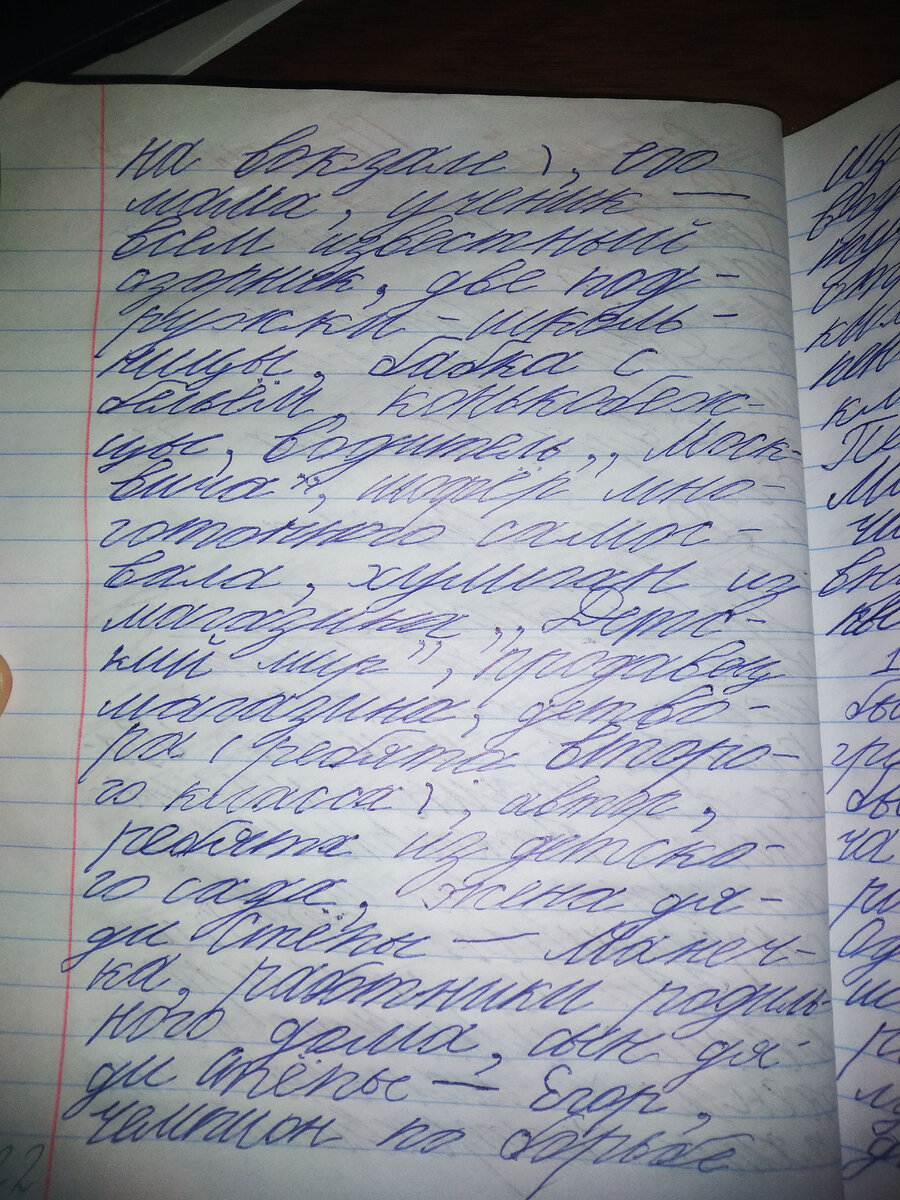 на вокзале), его
мама, ученик —
всем известный
озорник, две под-
ружки – школь-
ницы, бабка с
бельём, конькобеж-
цы, водитель „Моск-
вича", шофёр мно-
готонного самос-
вала, хулиган из
магазина „Детс-
кий мир", продавец
магазина, детво-
ра (ребята второ-
го класса), автор,
ребята из детско-
го сада, жена дя-
ди Стёпы — Манеч-
ка, работники родиль-
ного дома, сын дя-
ди Стёпы — Егор,
чемпион по борьбе
22